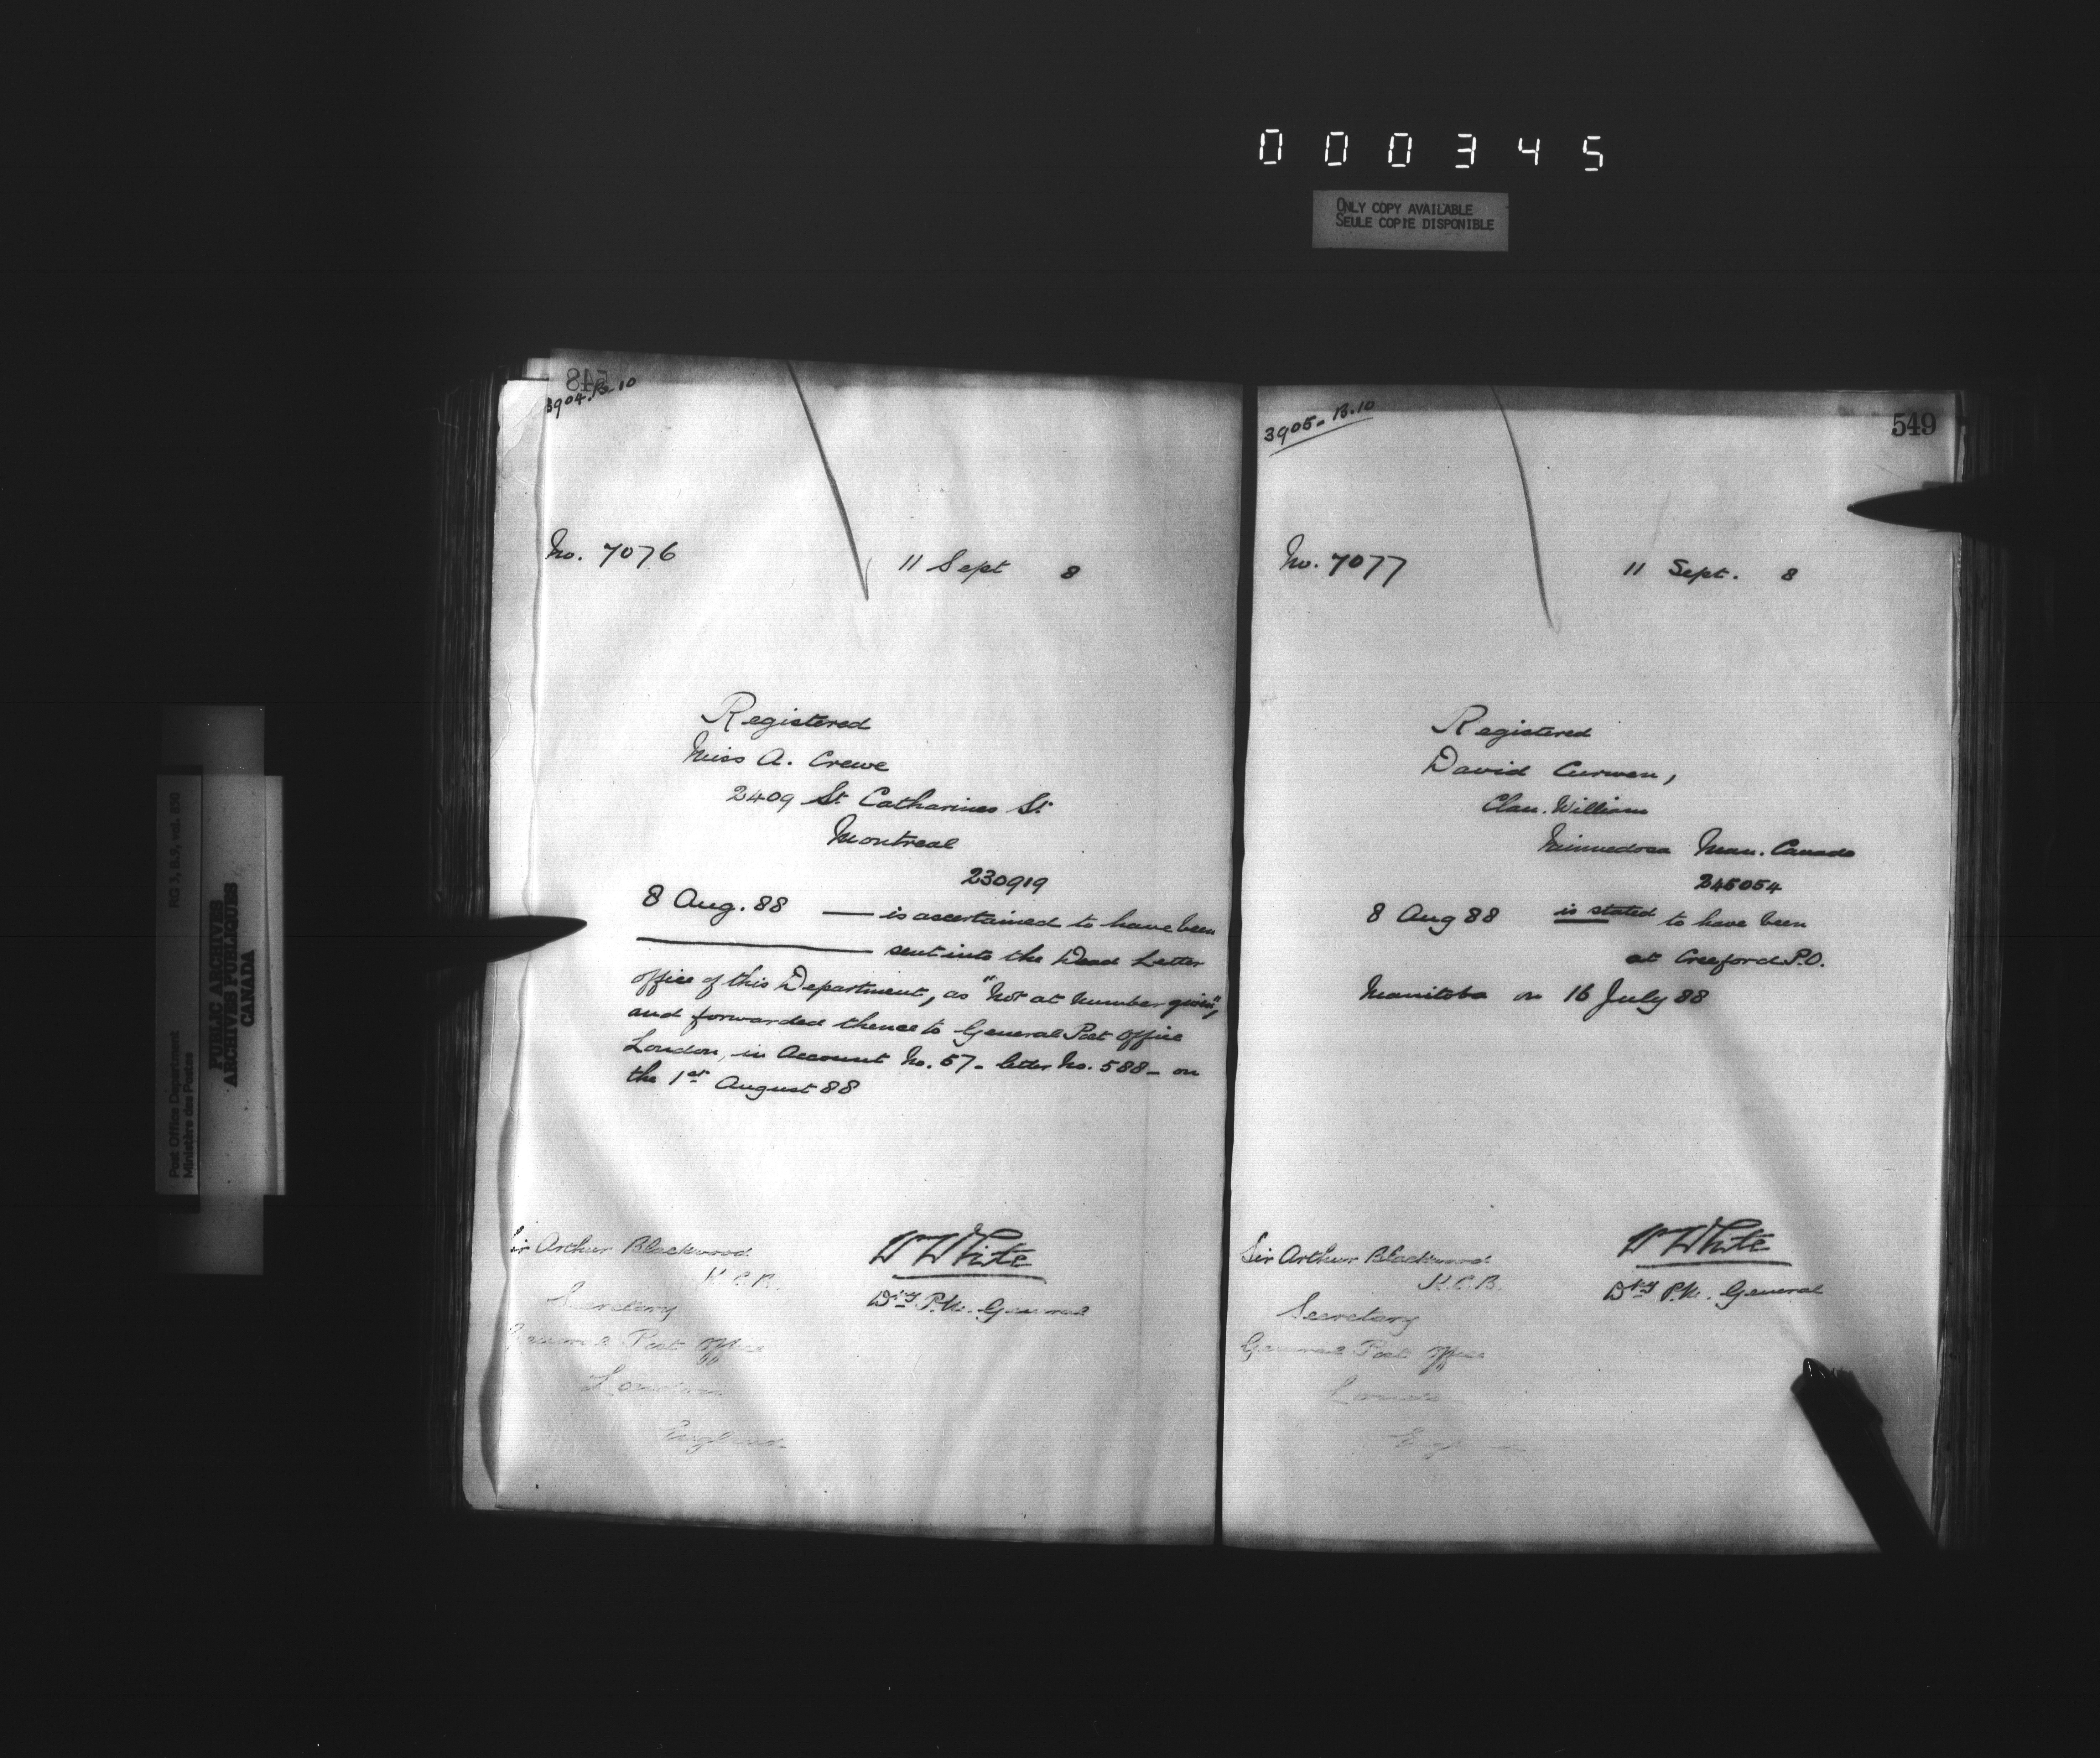 000345
ONLY COPY AVAILABLE
SEULE COPIE DISPONIBLE
RG 3, B.9, vol. 650
Post Office Department
Ministère des Postes
PUBLIC ARCHIVES
ARCHIVES PUBLIQUES
CANADA
548
3904.B.10
No. 7076
11 Sept 8
Registered
Miss A. Crewe
2409 St Catharines St.
Montreal
230919
8 Aug. 88 — is ascertained to have been
— sent into the Dead Letter
office of this Department, as "Not at number given",
and forwarded thence to General Post Office
London, in Account No. 57 - letter No. 588 - on
the 1st August 88
Sir Arthur Blackwood
K.C.B.
Secretary
General Post Office
London
England
W White
Dty P.M. General
549
3905-B.10
No. 7077
11 Sept. 8
Registered
David Curwen,
Clan. William
Minnedosa Man. Canada
245054
8 Aug 88 is stated to have been
at Creeford P.O.
Manitoba on 16 July 88
Sir Arthur Blackwood
K.C.B.
Secretary
General Post Office
W White
Dty P.M. General